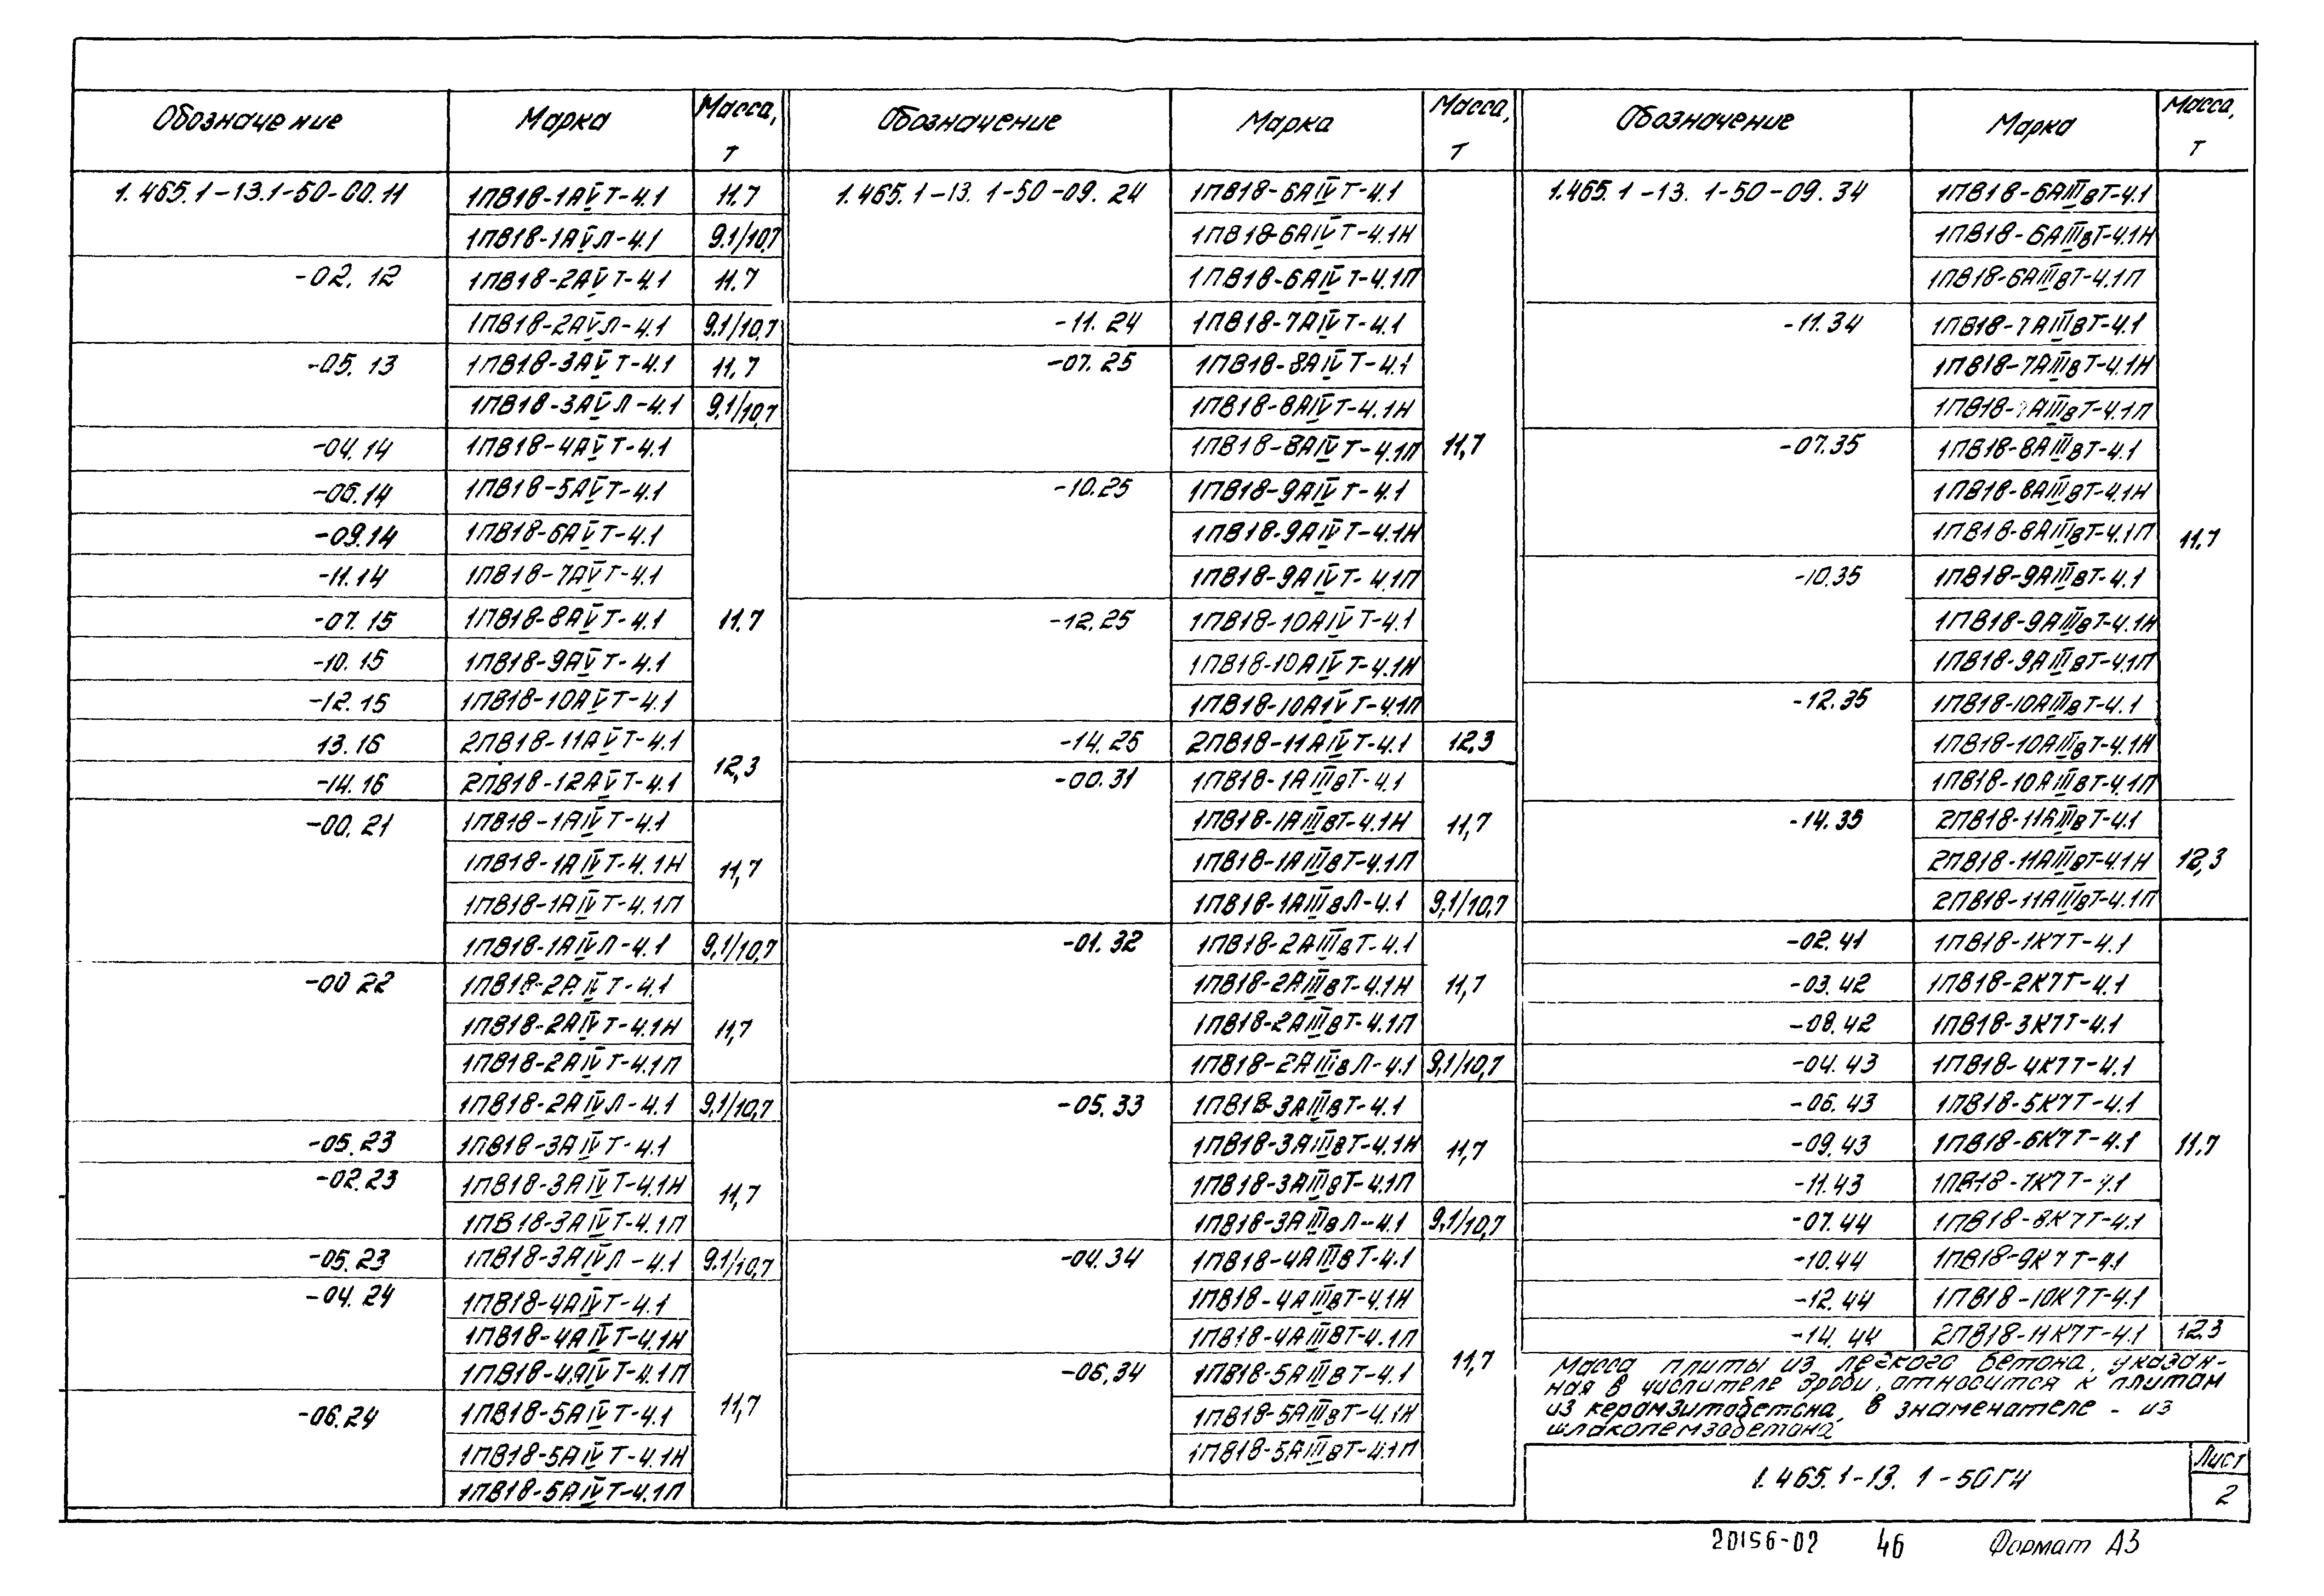 Обозначение Марка Масса, т
1.465.1-13.1-50-00.11 1ПВ18-1АⅤТ-4.1 11.7
1ПВ18-1АⅤЛ-4.1 9.1/10,7
-02.12 1ПВ18-2АⅤТ-4.1 11.7
1ПВ18-2АⅤЛ-4.1 9.1/10,7
-05.13 1ПВ18-3АⅤТ-4.1 11,7
1ПВ18-3АⅤЛ-4.1 9,1/10,7
-04.14 1ПВ18-4АⅤТ-4.1
-06.14 1ПВ18-5АⅤТ-4.1
-09.14 1ПВ18-6АⅤТ-4.1
-11.14 1ПВ18-7АⅤТ-4.1
-07.15 1ПВ18-8АⅤТ-4.1 11.7
-10.15 1ПВ18-9АⅤТ-4.1
-12.15 1ПВ18-10АⅤТ-4.1
13.16 2ПВ18-11АⅤТ-4.1 12,3
-14.16 2ПВ18-12АⅤТ-4.1
-00.21 1ПВ18-1АⅣТ-4.1
1ПВ18-1АⅣТ-4.1Н 11,7
1ПВ18-1АⅣТ-4.1П
1ПВ18-1АⅣЛ-4.1 9,1/10,7
-00 22 1ПВ18-2АⅣТ-4.1
1ПВ18-2АⅣТ-4.1Н 11,7
1ПВ18-2АⅣТ-4.1П
1ПВ18-2АⅣЛ-4.1 9,1/10,7
-05.23 1ПВ18-3АⅣТ-4.1
-02.23 1ПВ18-3АⅣТ-4.1Н 11,7
1ПВ18-3АⅣТ-4.1П
-05.23 1ПВ18-3АⅣЛ-4.1 9.1/10,7
-04.24 1ПВ18-4АⅣТ-4.1
1ПВ18-4АⅣТ-4.1Н
1ПВ18-4АⅣТ-4.1П
-06.24 1ПВ18-5АⅣТ-4.1 11,7
1ПВ18-5АⅣТ-4.1Н
1ПВ18-5АⅣТ-4.1П
Обозначение Марка Масса, т
1.465.1-13.1-50-09.24 1ПВ18-6АⅣТ-4.1
1ПВ18-6АⅣТ-4.1Н
1ПВ18-6АⅣТ-4.1П
-11.24 1ПВ18-7АⅣТ-4.1
-07.25 1ПВ18-8АⅣТ-4.1
1ПВ18-8АⅣТ-4.1Н
1ПВ18-8АⅣТ-4.1П 11,7
-10.25 1ПВ18-9АⅣТ-4.1
1ПВ18-9АⅣТ-4.1Н
1ПВ18-9АⅣТ-4.1П
-12.25 1ПВ18-10АⅣТ-4.1
1ПВ18-10АⅣТ-4.1Н
1ПВ18-10АⅣТ-4.1П
-14.25 2ПВ18-11АⅣТ-4.1 12,3
-00.31 1ПВ18-1АⅢвТ-4.1
1ПВ18-1АⅢвТ-4.1Н 11,7
1ПВ18-1АⅢвТ-4.1П
1ПВ18-1АⅢвЛ-4.1 9,1/10,7
-01.32 1ПВ18-2АⅢвТ-4.1
1ПВ18-2АⅢвТ-4.1Н 11,7
1ПВ18-2АⅢвТ-4.1П
1ПВ18-2АⅢвЛ-4.1 9,1/10,7
-05.33 1ПВ18-3АⅢвТ-4.1
1ПВ18-3АⅢвТ-4.1Н 11,7
1ПВ18-3АⅢвТ-4.1П
1ПВ18-3АⅢвЛ-4.1 9,1/10,7
-04.34 1ПВ18-4АⅢвТ-4.1
1ПВ18-4АⅢвТ-4.1Н
1ПВ18-4АⅢвТ-4.1П
-06,34 1ПВ18-5АⅢвТ-4.1 11,7
1ПВ18-5АⅢвТ-4.1Н
1ПВ18-5АⅢвТ-4.1П
Обозначение Марка Масса, т
1.465.1-13.1-50-09.34 1ПВ18-6АⅢвТ-4.1
1ПВ18-6АⅢвТ-4.1Н
1ПВ18-6АⅢвТ-4.1П
-11.34 1ПВ18-7АⅢвТ-4.1
1ПВ18-7АⅢвТ-4.1Н
1ПВ18-7АⅢвТ-4.1П
-07.35 1ПВ18-8АⅢвТ-4.1
1ПВ18-8АⅢвТ-4.1Н
1ПВ18-8АⅢвТ-4.1П 11,7
-10.35 1ПВ18-9АⅢвТ-4.1
1ПВ18-9АⅢвТ-4.1Н
1ПВ18-9АⅢвТ-4.1П
-12.35 1ПВ18-10АⅢвТ-4.1
1ПВ18-10АⅢвТ-4.1Н
1ПВ18-10АⅢвТ-4.1П
-14.35 2ПВ18-11АⅢвТ-4.1
2ПВ18-11АⅢвТ-4.1Н 12,3
2ПВ18-11АⅢвТ-4.1П
-02.41 1ПВ18-1К7Т-4.1
-03.42 1ПВ18-2К7Т-4.1
-08.42 1ПВ18-3К7Т-4.1
-04.43 1ПВ18-4К7Т-4.1
-06.43 1ПВ18-5К7Т-4.1
-09.43 1ПВ18-6К7Т-4.1 11.7
-11.43 1ПВ18-7К7Т-4.1
-07.44 1ПВ18-8К7Т-4.1
-10.44 1ПВ18-9К7Т-4.1
-12.44 1ПВ18-10К7Т-4.1
-14.44 2ПВ18-11К7Т-4.1 12.3
Масса плиты из легкого бетона, указан-
ная в числителе дроби, относится к плитам
из керамзитобетона, в знаменателе - из
шлакопемзобетона
1.465.1-13.1-50ГЧ
Лист
2
20156-02 46 Формат А3